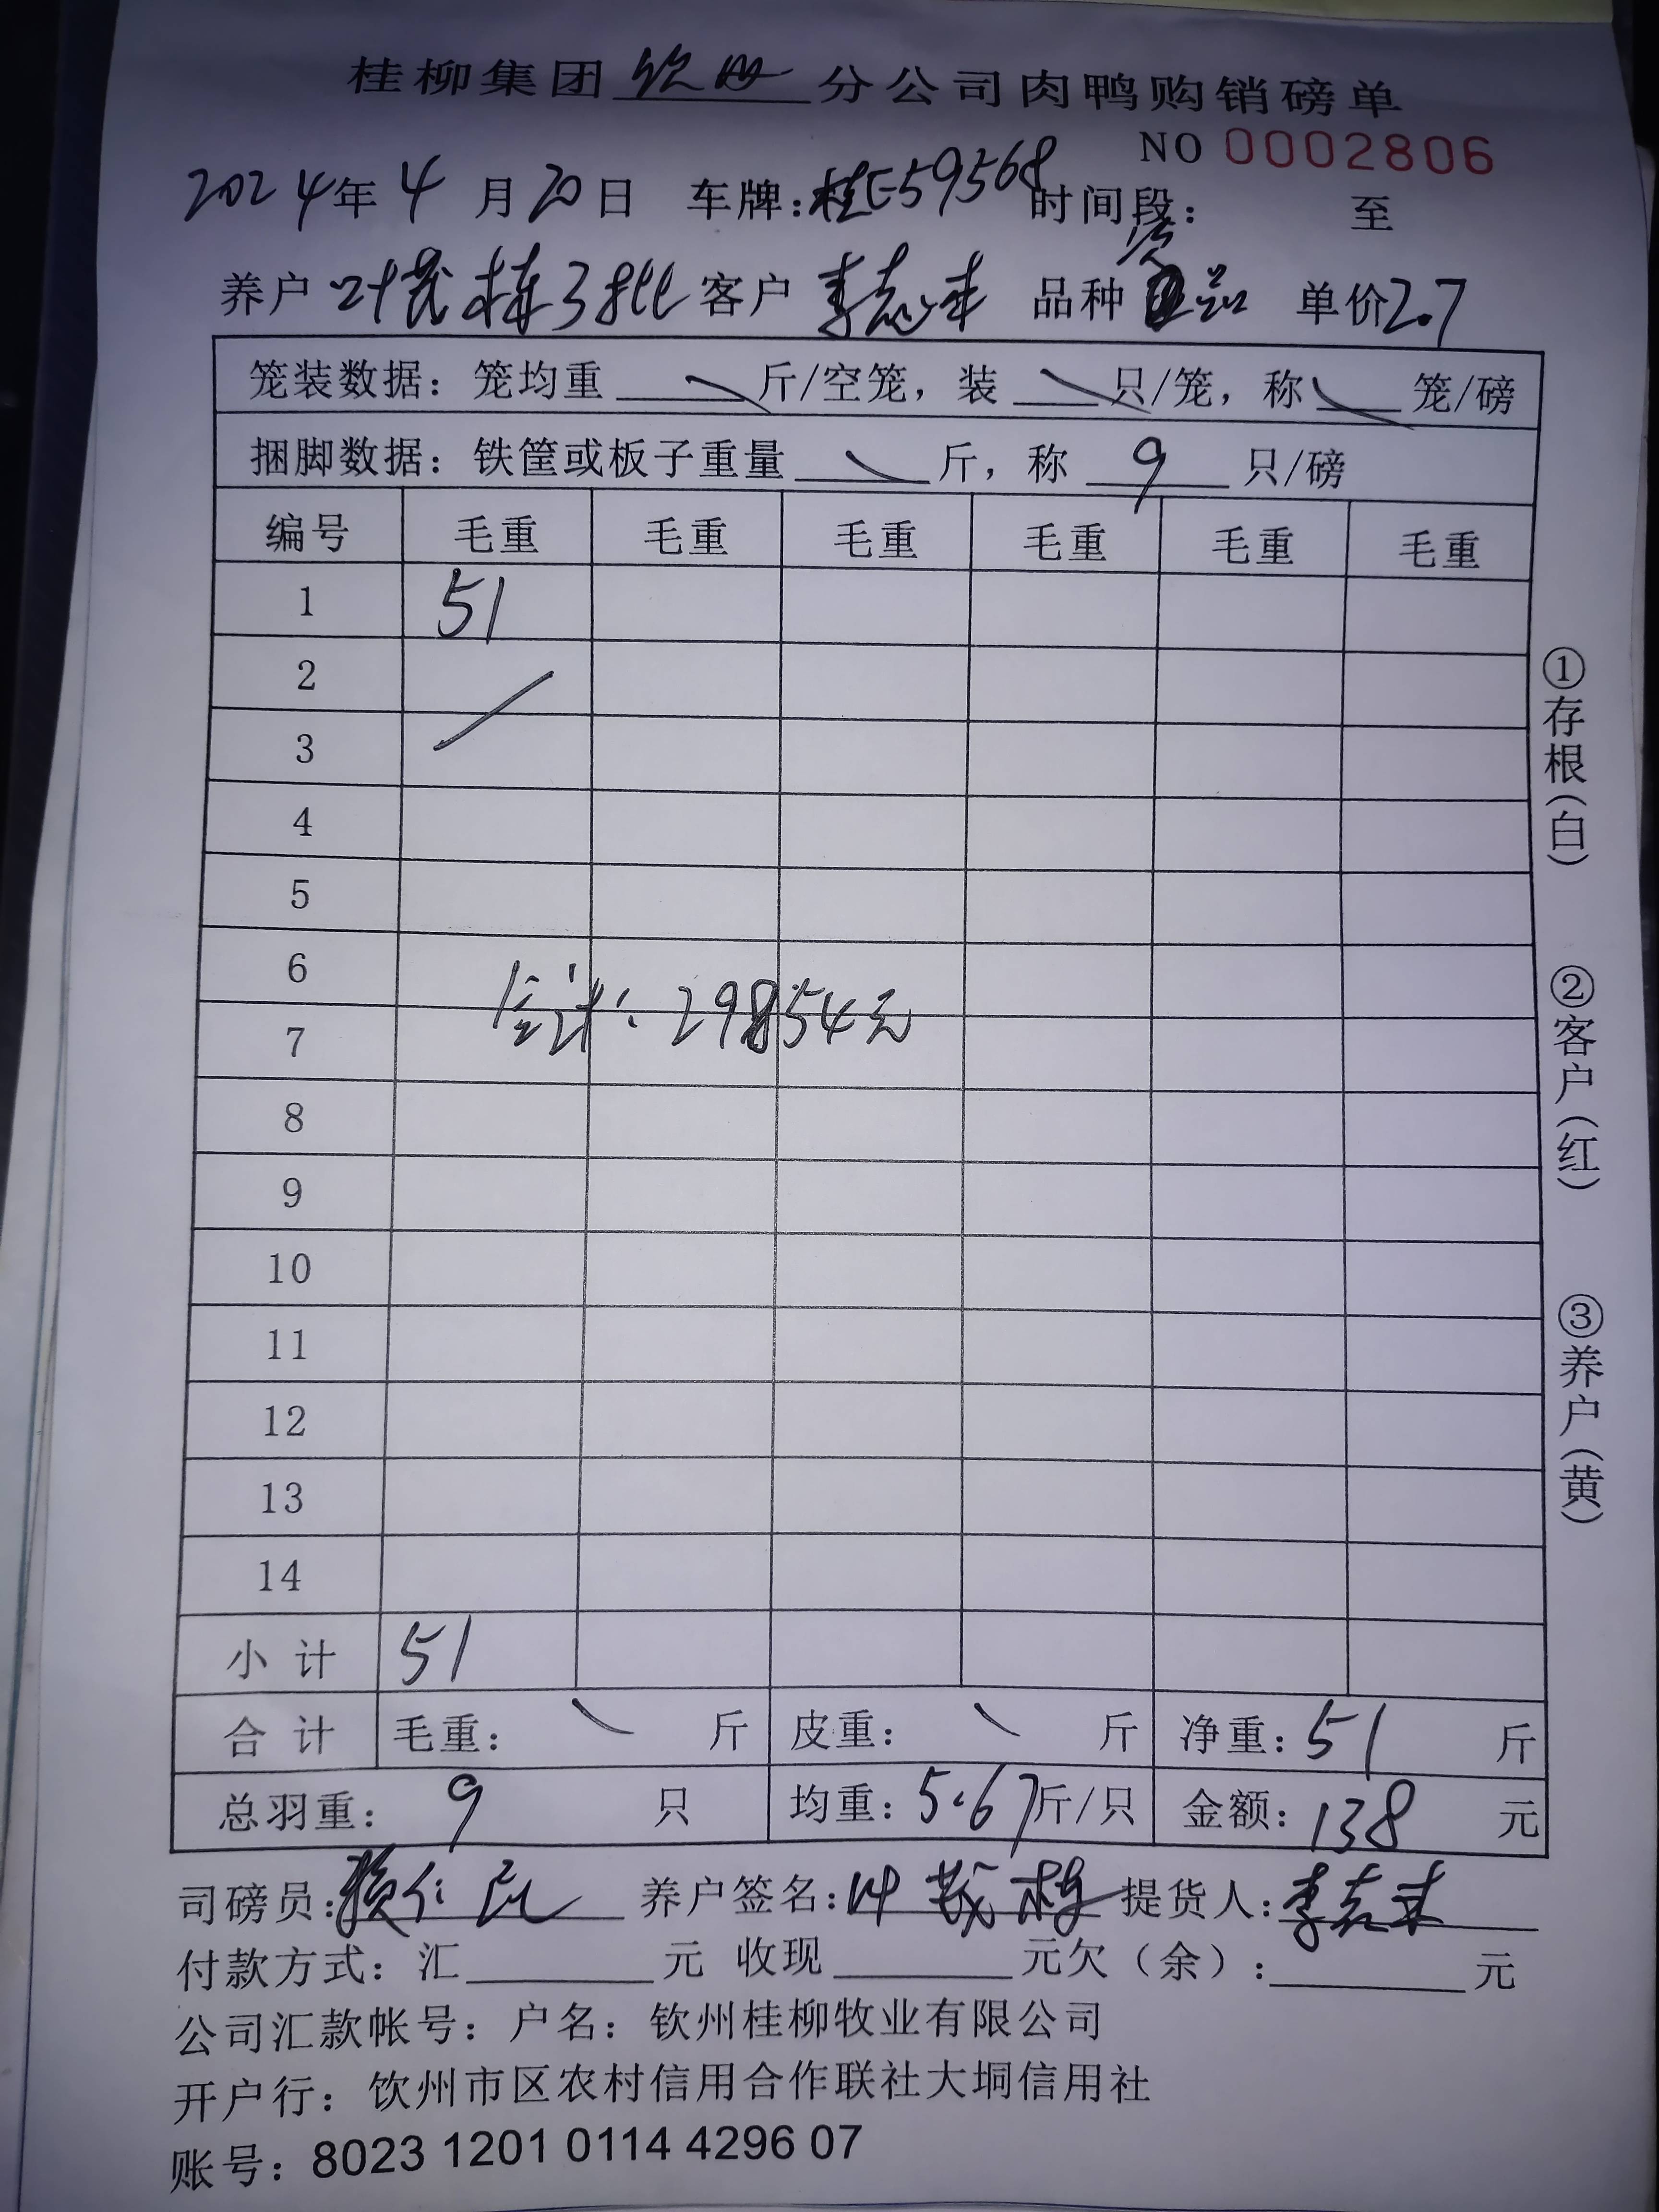 桂柳集团钦州分公司肉鸭购销磅单
NO 0002806
2024年4月20日 车牌:桂E59568 时间段: 至
养户 叶茂栋3批 客户 李志 品种 单价2.7
笼装数据: 笼均重 斤/空笼, 装 只/笼, 称 笼/磅
捆脚数据: 铁筐或板子重量 斤, 称 9 只/磅
编号 毛重 毛重 毛重 毛重 毛重 毛重
1 51
2
3
4
5
6
总计: 29854元
7
8
9
10
11
12
13
14
小计 51
合计 毛重: 斤 皮重: 斤 净重: 51 斤
总羽重: 9 只 均重: 5.67斤/只 金额: 138 元
司磅员: 养户签名: 叶茂栋 提货人: 李志
付款方式: 汇 元 收现 元欠(余): 元
公司汇款帐号: 户名: 钦州桂柳牧业有限公司
开户行: 钦州市区农村信用合作联社大垌信用社
账号: 8023 1201 0114 4296 07
①存根(白)
②客户(红)
③养户(黄)